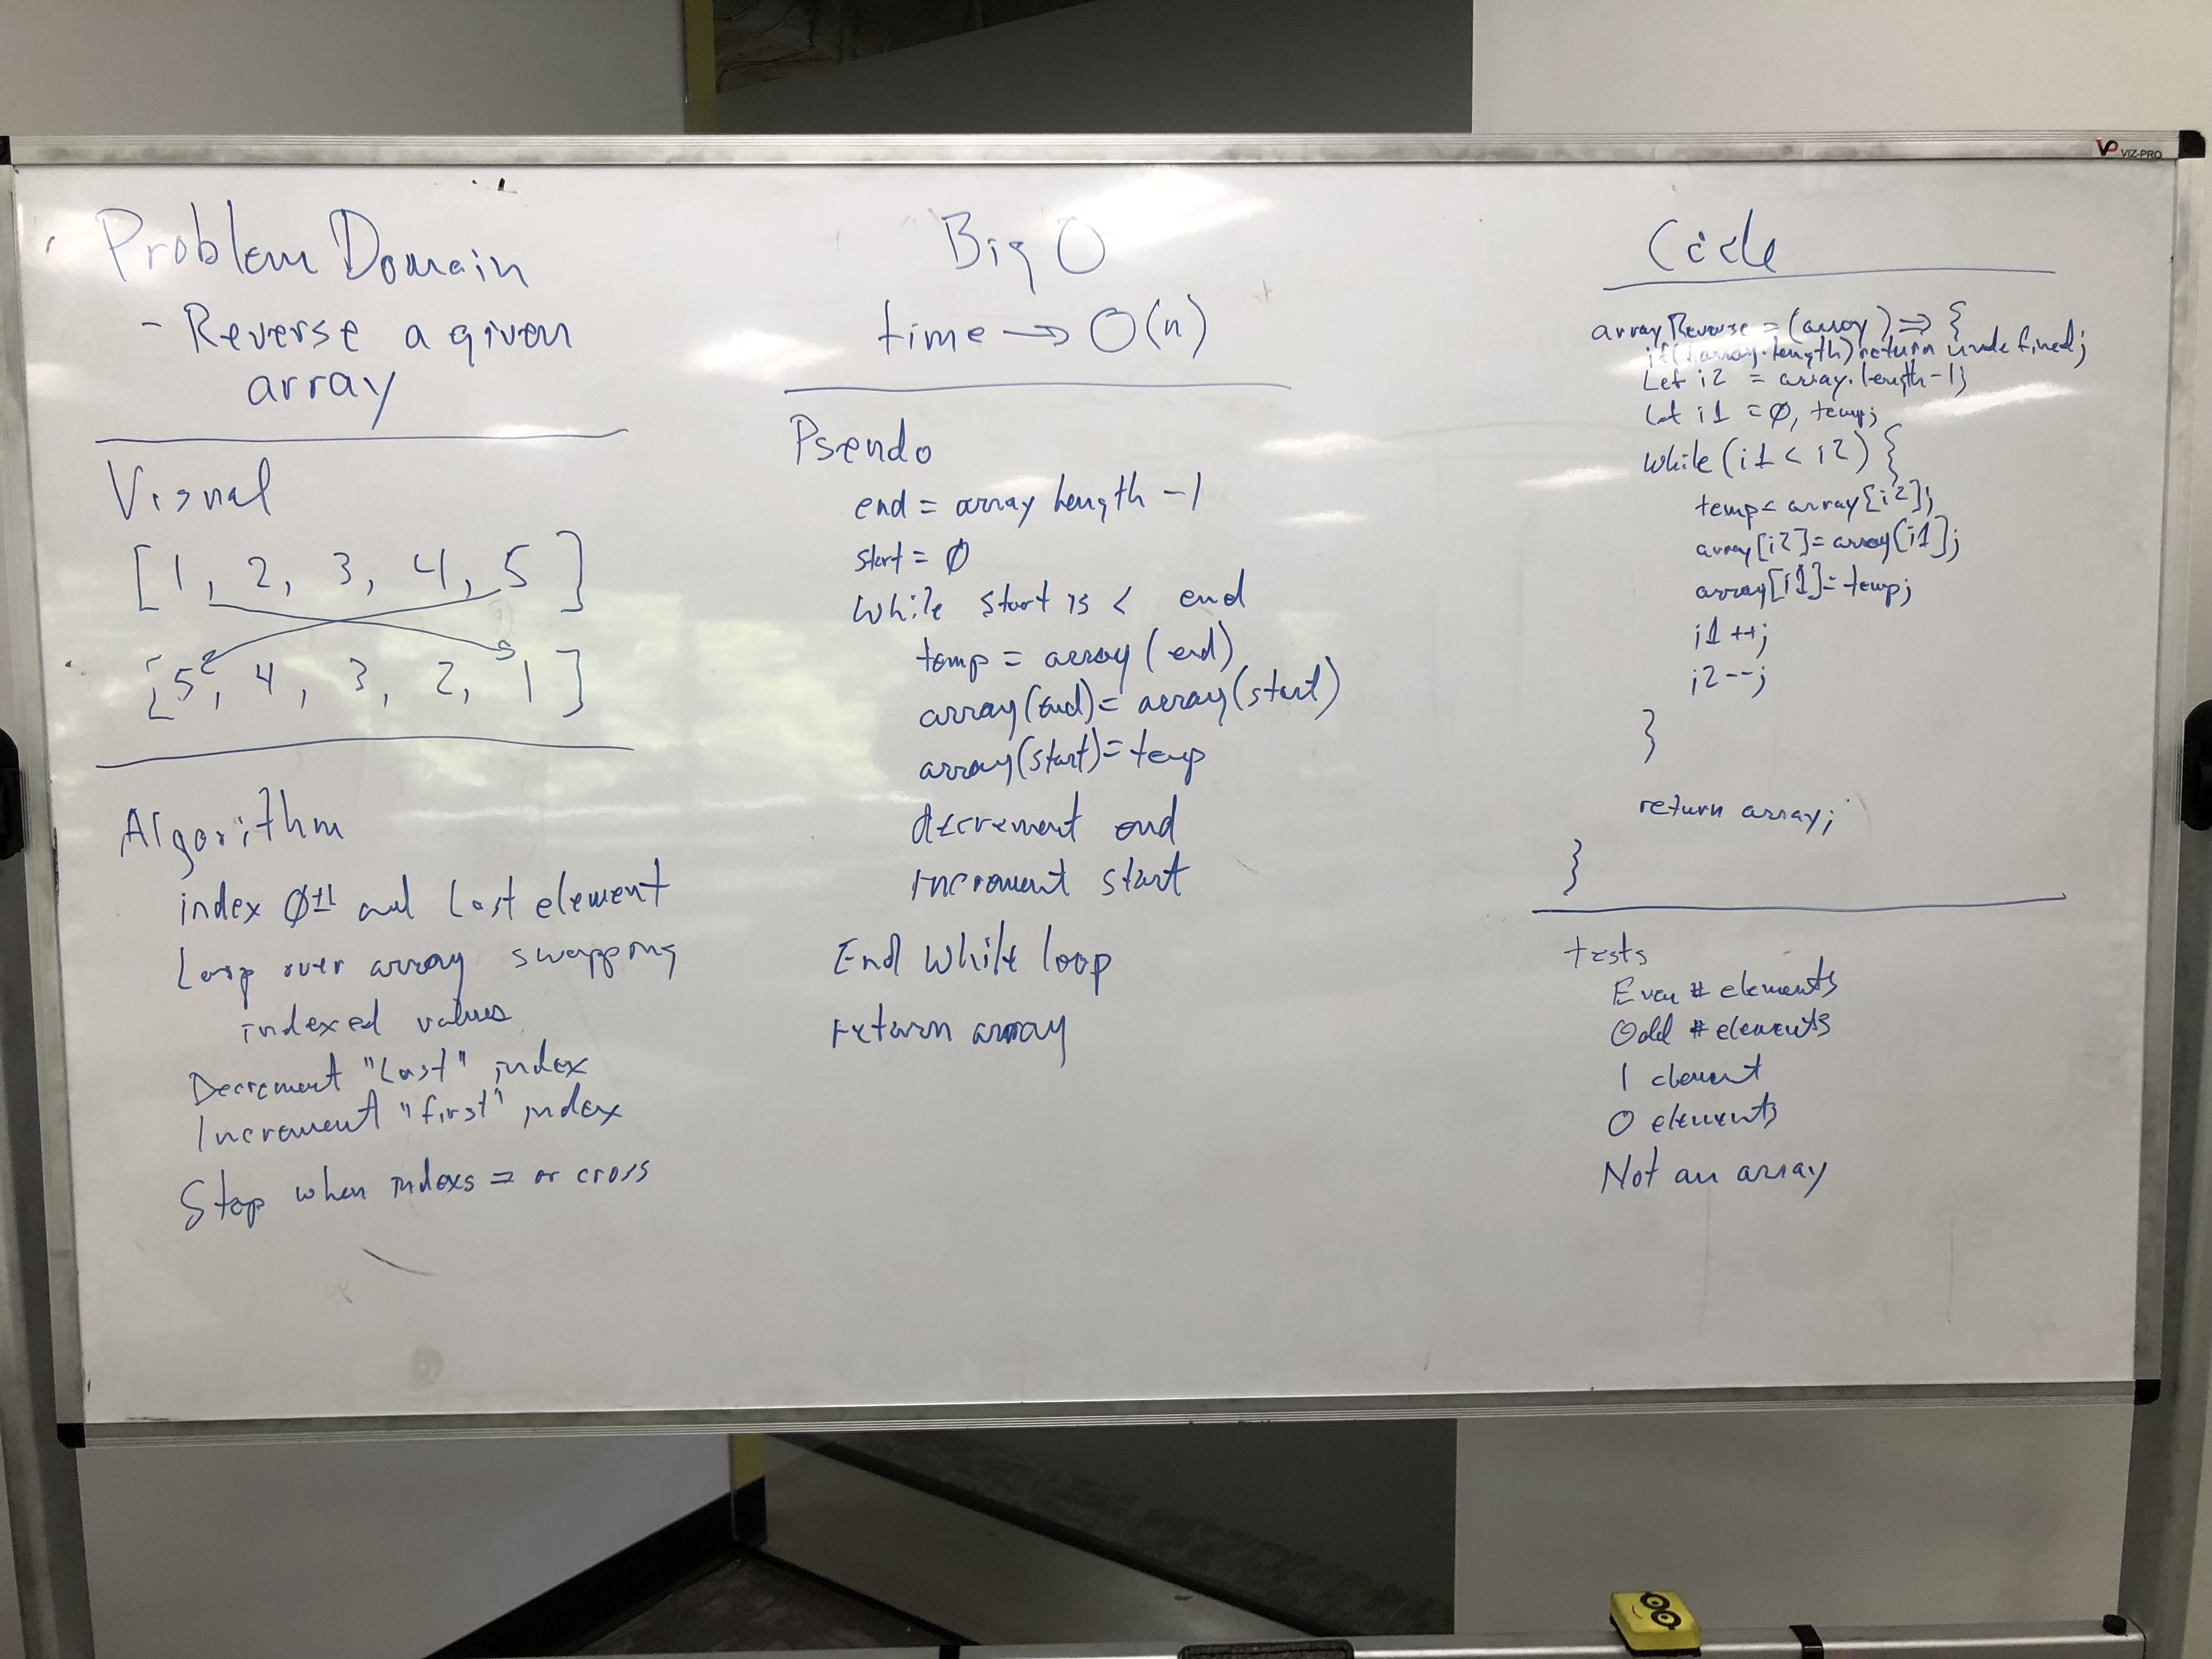 VP VIZ-PRO
Problem Domain
- Reverse a given
array
Visual
[1, 2, 3, 4, 5]
[5, 4, 3, 2, 1]
Algorithm
index and last element
Loop over array swapping
indexed values
Decrement "Last" index
Increment "first" index
Stop when indexs = or cross
Big O
time → O(n)
Pseudo
end = array length -1
start = Ø
While start is < end
temp = array(end)
array(end) = array(start)
array(start) = temp
decrement end
increment start
End While loop
return array
Code
arrayReverse = (array) => {
if(!array.length) return undefined;
Let i2 = array.length-1;
Let i1 = Ø, temp;
While (i1 < i2) {
temp = array[i2];
array[i2] = array[i1];
array[i1] = temp;
i1++;
i2--;
}
return array;
}
tests
Even # elements
Odd # elements
1 element
0 elements
Not an array